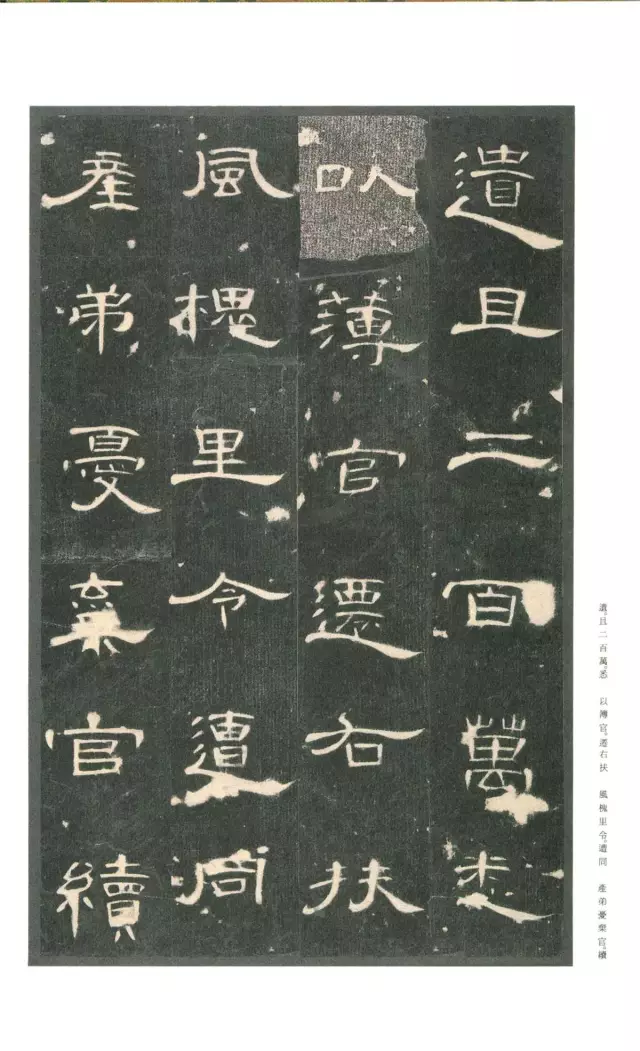 遺且二百萬悉
以薄官遷右扶
風槐里令遭同
産弟憂棄官續
遺。且二百萬。悉　以簿官。遷右扶　風槐里令。遭同　產弟憂棄官。續